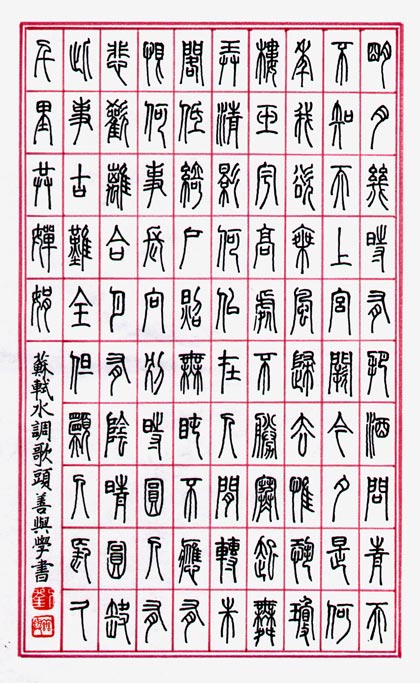 明月幾時有把酒問青天
不知天上宮闕今夕是何
年我欲乘風歸去惟恐瓊
樓玉宇高處不勝寒起舞
弄清影何似在人間轉朱
閣低綺戶照無眠不應有
恨何事長向別時圓人有
悲歡離合月有陰晴圓缺
此事古難全但願人長久
千里共嬋娟
蘇軾水調歌頭善與學書